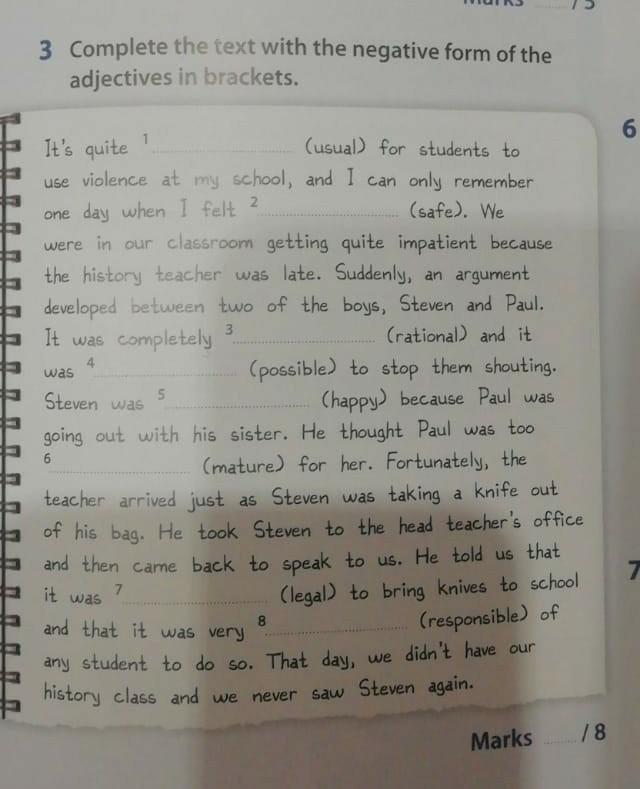 / 5
3 Complete the text with the negative form of the
adjectives in brackets.
It's quite 1 .................... (usual) for students to
use violence at my school, and I can only remember
one day when I felt 2 .................... (safe). We
were in our classroom getting quite impatient because
the history teacher was late. Suddenly, an argument
developed between two of the boys, Steven and Paul.
It was completely 3 .................... (rational) and it
was 4 .................... (possible) to stop them shouting.
Steven was 5 .................... (happy) because Paul was
going out with his sister. He thought Paul was too
6 .................... (mature) for her. Fortunately, the
teacher arrived just as Steven was taking a knife out
of his bag. He took Steven to the head teacher's office
and then came back to speak to us. He told us that
it was 7 .................... (legal) to bring knives to school
and that it was very 8 .................... (responsible) of
any student to do so. That day, we didn't have our
history class and we never saw Steven again.
Marks ........ / 8
6
7